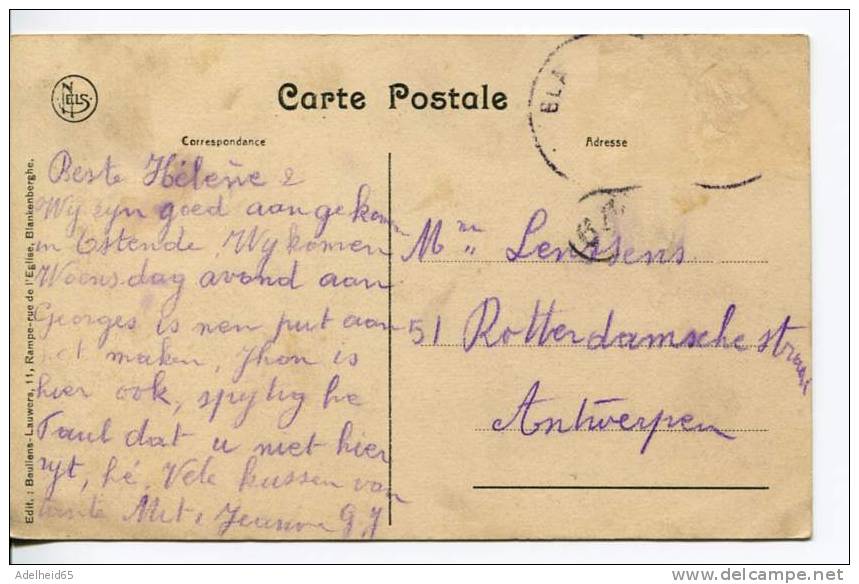 NELS
Carte Postale
BLA
Correspondance
Adresse
Edit. : Beullens-Lauwers, 11, Rampe-rue de l'Eglise, Blankenberghe.
Beste Hélène
Wij zyn goed aangekomen
in Ostende. Wy komen
Woensdag avond aan
Georges is nen put aan
het maken, Jhon is
hier ook, spijtig he
Paul dat u niet hier
zyt, hé. Vele kussen van
tante
Mme Lenssens
51 Rotterdamsche straat
Antwerpen
Adelheid65
delcampe.net